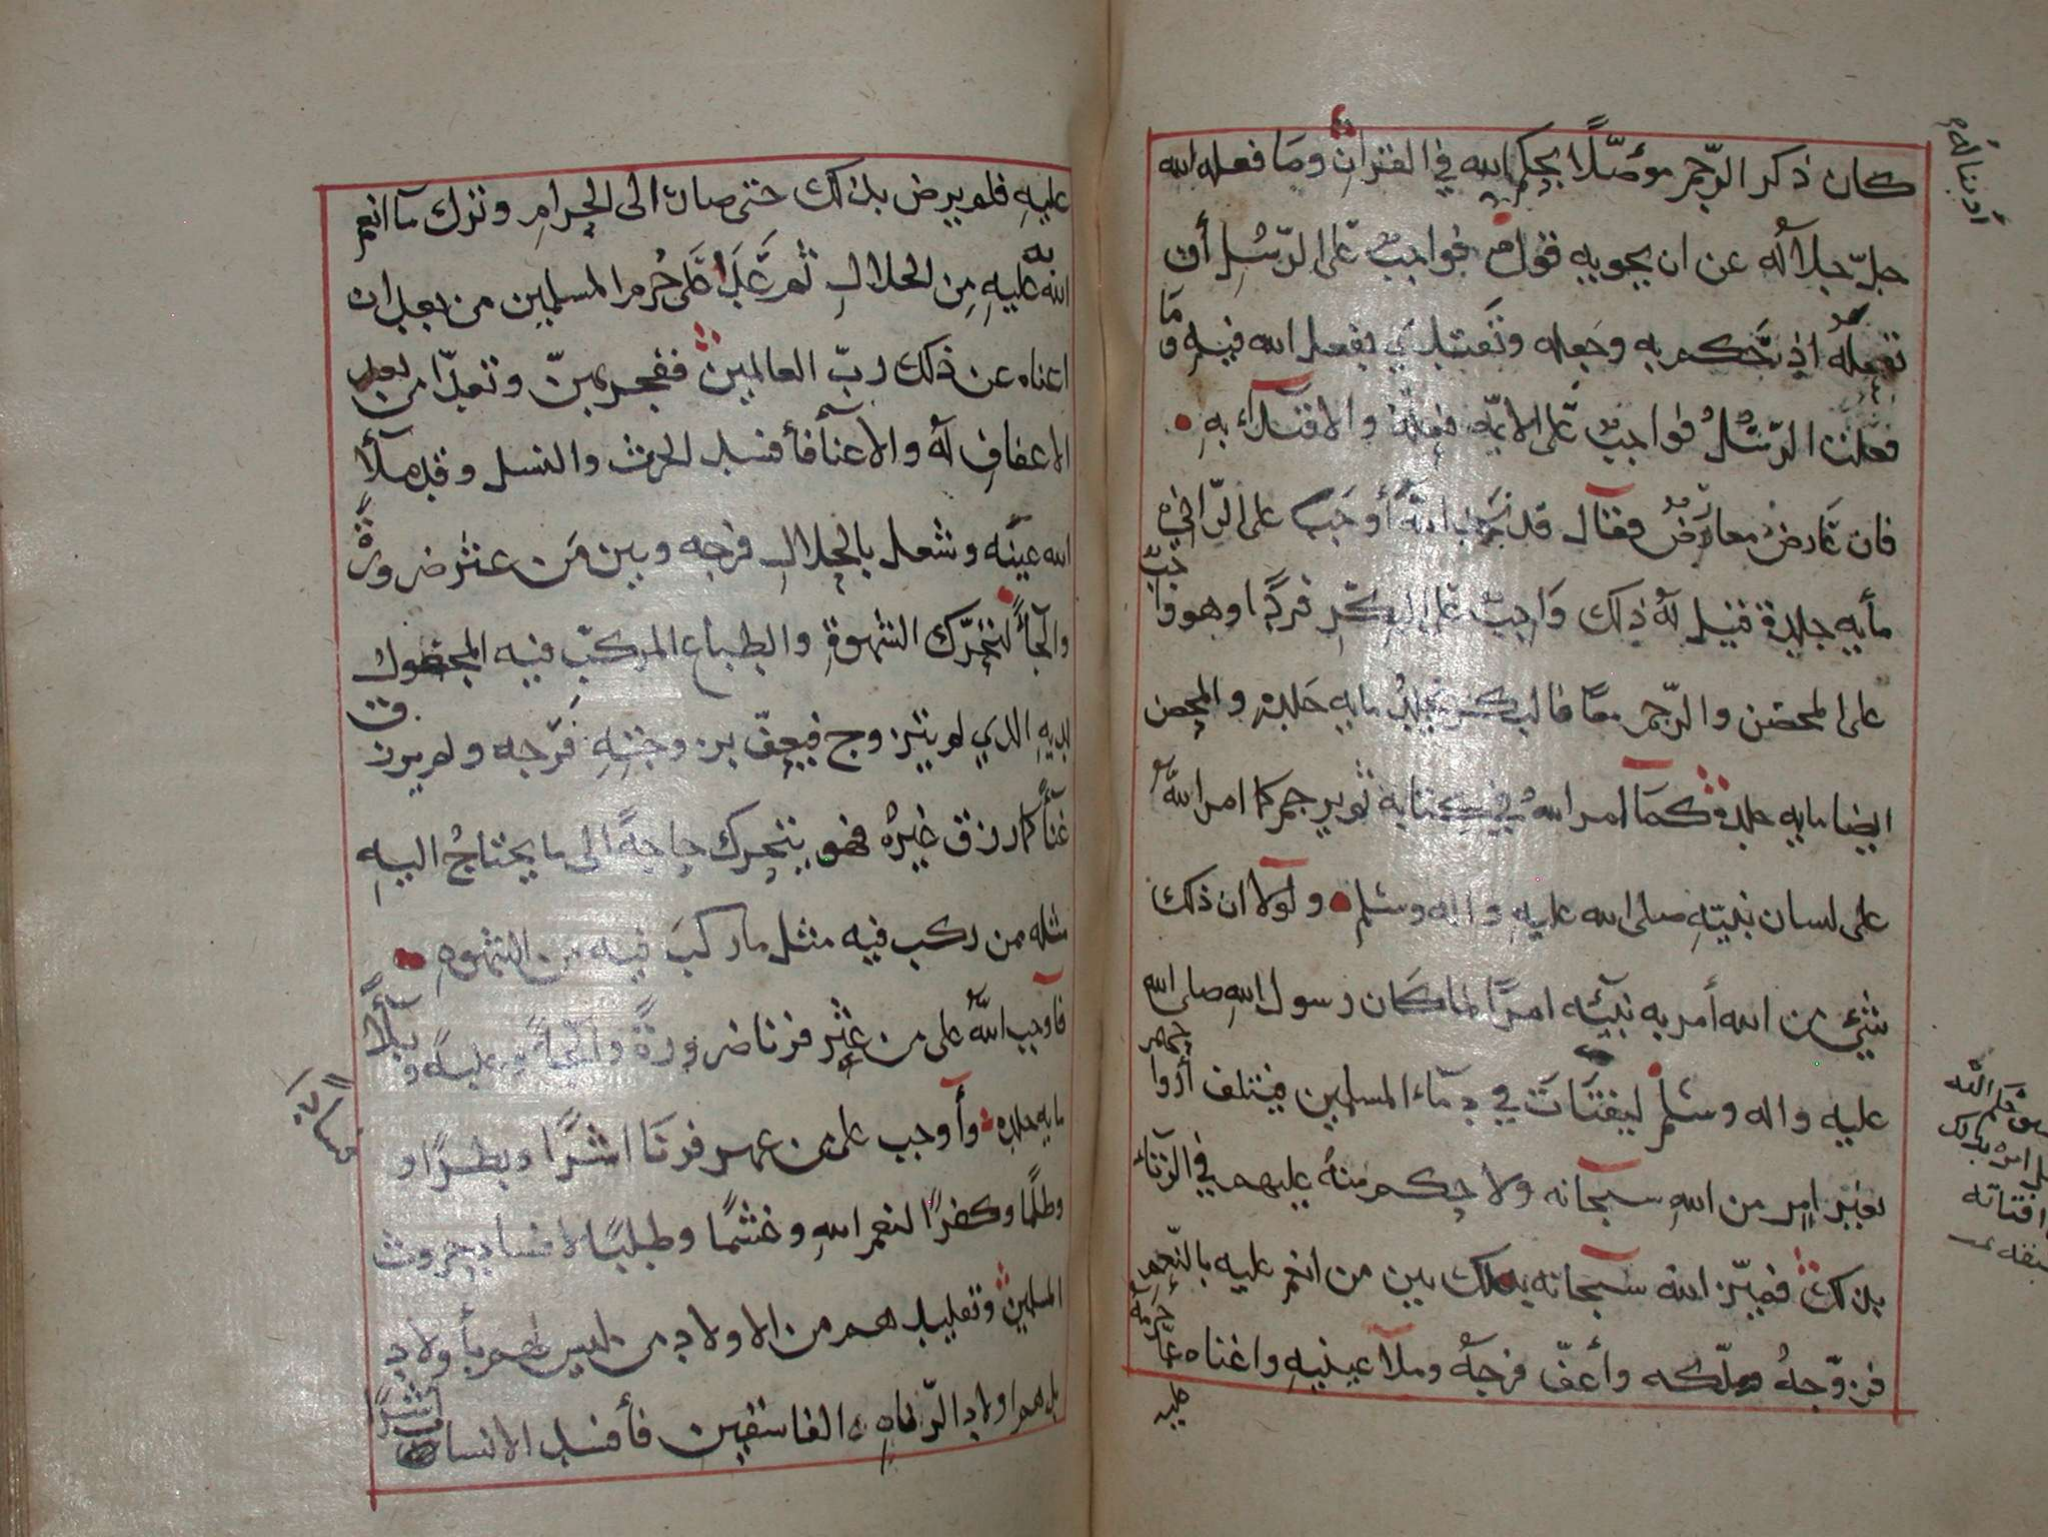 كان ذكر الرّجم مؤصّلًا بحكم الله في القرآن وما فعله الله
جلّ جلاله عن ان يحويه قول فواجبٌ على الرّسُل أن
تفعله اذ حكم به وجعله وتمتثل بفعل الله فيه وما
فعلت الرّسُلُ فواجبٌ على الأئمّة فعله والاقتدآء به
فان عَارضَ معارضٌ فقال قد نجد اللهَ أوجَب على الزاني
مأيه جلدة قيل له ذلك وَاجبٌ على البِكرِ فردًا وهو واجبٌ
على المحصن والرّجم معًا فالبكر يجلد مايه جلدة والمحصن
ايضا مايه جلدة كما امر الله في كتابه ثم يرجم كما امر اللهُ
على لسان نبيّهِ صلى الله عليهِ واله وسَلم ولَولا ان ذلك
شيء من الله أمر به نبيّه امرًا لما كان رسول الله صلى الله
عليه واله وسَلم ليفتَاتَ في دمآء المسلمين فيتلف أرواحهم
بغير امر من اللهِ سبحانه ولا حكم منهُ عليهم في الزناء
بذلك فميّز الله سبحانه بذلك بين من انعم عليه بالنّعم
فزوّجهُ وملّكه وأعفّ فرجهُ وملأ عينيهِ واغناه عمّا حرمه
عليه
أدبنا لهُ
عليهِ فلم يرض بذلك حتى صار الى الحرامِ وترك ما انعم
اللهُ به عليهِ مِن الحلالِ ثم عَدَا على حُرم المسلمين من بعد ان
اغناه عن ذلك ربّ العالمين ففجر بهنّ وتعدّا من بعد
الاعفاف له والاغنآء فأفسد الحرث والنسل وقد ملأ
الله عينَه وشغل بالحلالِ فرجه وبين مَن عثر ضرورةً
والجآءً لتحرّك الشهوةِ والطباع المركبّ فيه
لديهِ الذي لم يتزوج فيعفّ بزوجتهِ فَرجه ولم يرزق
غنآءً كما رزق غيرُه فهو يتحرك حاجةً الى ما يحتاجُ اليهِ
مثله ممن ركب فيه مثل ما ركبَ فيه من الشهوه
فأوجب اللهُ على من عثر فزنا ضرورةً والجآءً وبليةً وبلآءً
مايه جلده وأوجب على من عهر فزنَا اشَرًا وبطرًا و
وظلمًا وكفرًا لنعم اللهِ وغشمًا وطلبًا لافساد حروث
المسلمين وتقليدهم من الاولاد من ليس لهم بأولاد
بل هم اولاد الزناه الفاسقين فأفسد الانسان
فسادًا